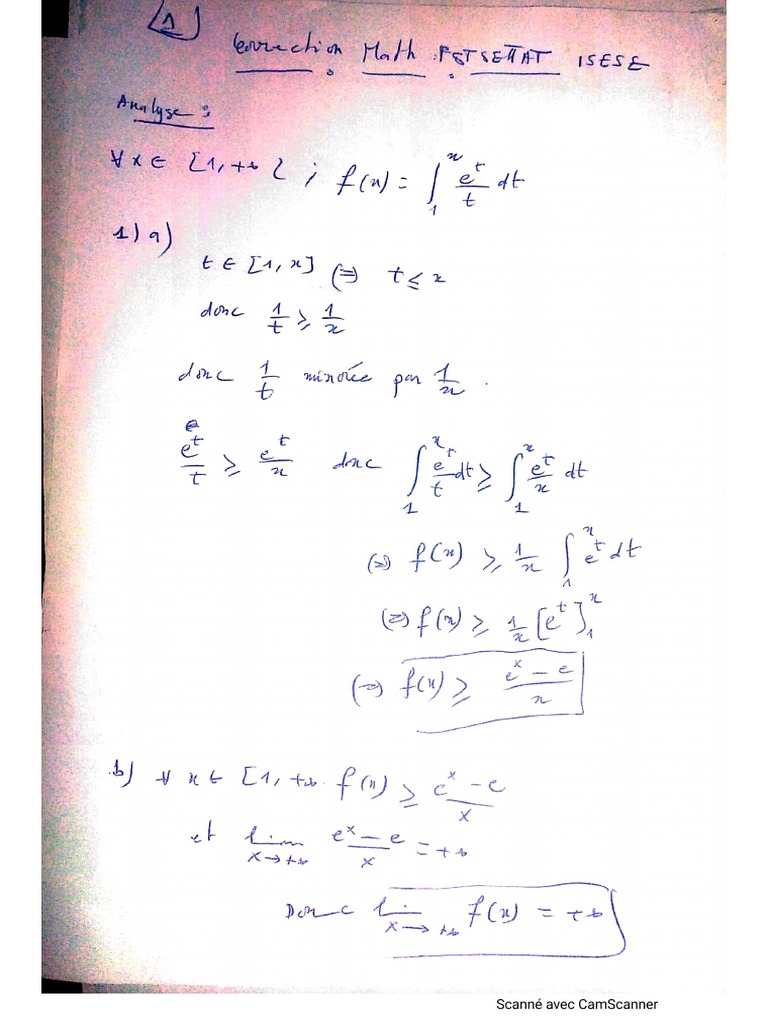 1
Correction Math : FST SETTAT ISESE
Analyse :
∀ x ∈ [1, +∞[ ; f(x) = ∫₁ˣ e^t/t dt
1) a)
t ∈ [1, x] ⇔ t ≤ x
donc 1/t ≥ 1/x
donc 1/t minorée par 1/x .
e^t/t ≥ e^t/x donc ∫₁ˣ e^t/t dt ≥ ∫₁ˣ e^t/x dt
⇔ f(x) ≥ 1/x ∫₁ˣ e^t dt
⇔ f(x) ≥ 1/x [e^t]₁ˣ
⇔ f(x) ≥ (e^x - e)/x
b) ∀ x ∈ [1, +∞ f(x) ≥ (e^x - e)/x
et lim x→+∞ (e^x - e)/x = +∞
Donc lim x→+∞ f(x) = +∞
Scanné avec CamScanner